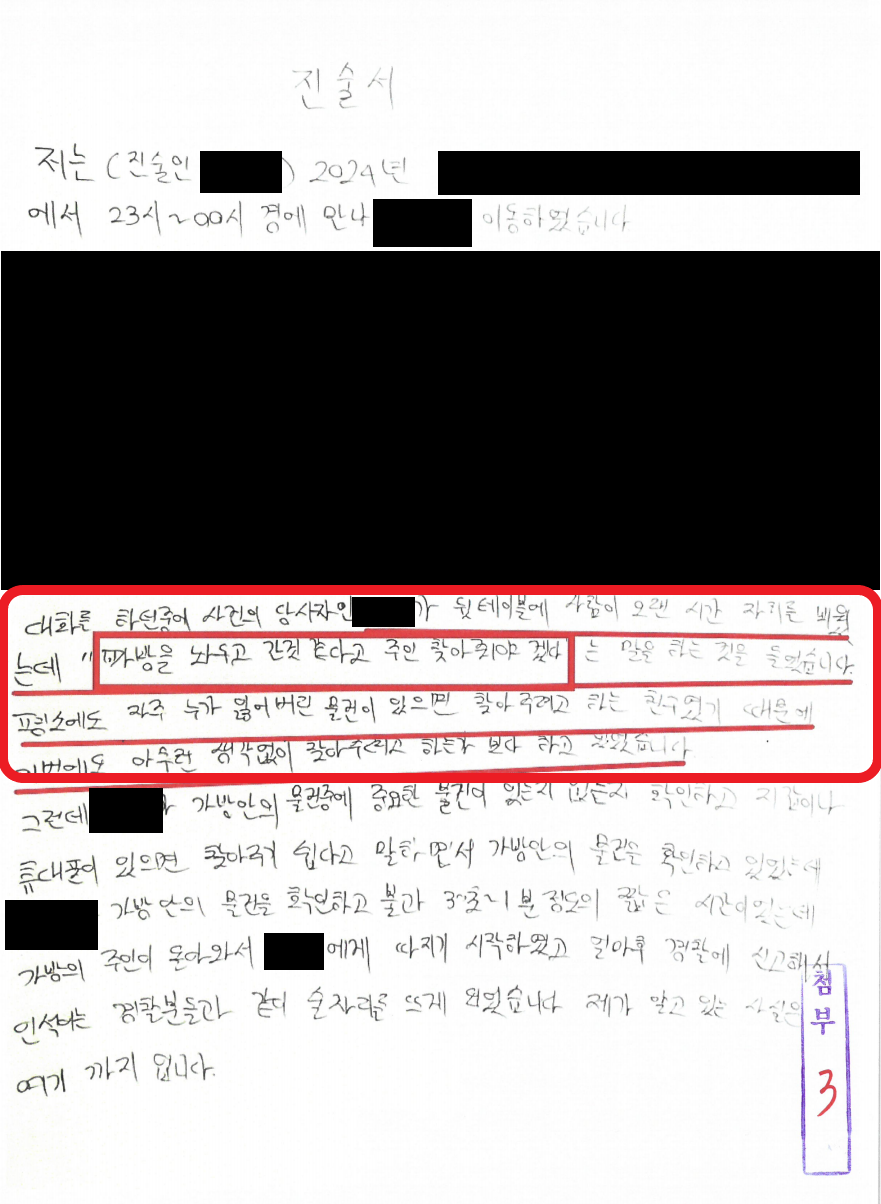 진술서
저는 (진술인 ) 2024년
에서 23시~00시 경에 만나 이동하였습니다
대화를 하던중에 사건의 당사자인 가 뒷테이블에 사람이 오랜 시간 자리를 비웠
는데 "가방을 놔두고 간것 같다고 주인 찾아줘야 겠다 는 말을 하는 것을 들었습니다.
평소에도 자주 누가 잃어버린 물건이 있으면 찾아 주려고 하는 친구였기 때문에
이번에도 아무런 생각없이 찾아주려고 하는가 보다 하고 있었습니다
그런데 가 가방안의 물건중에 중요한 물건이 있는지 없는지 확인하고 지갑이나
휴대폰이 있으면 찾아주기 쉽다고 말하면서 가방안의 물건을 확인하고 있었는데
가방 안의 물건을 확인하고 불과 30초~1분 정도의 짧은 시간이었는데
가방의 주인이 돌아와서 에게 따지기 시작하였고 얼마후 경찰에 신고해서
인석이는 경찰분들과 같이 술자리를 뜨게 되었습니다 제가 알고 있는 사실은
여기 까지 입니다.
첨부
3